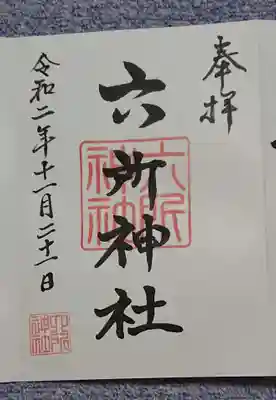 奉拝
六所神社
令和二年十一月二十一日
六所
神社
六所
神社